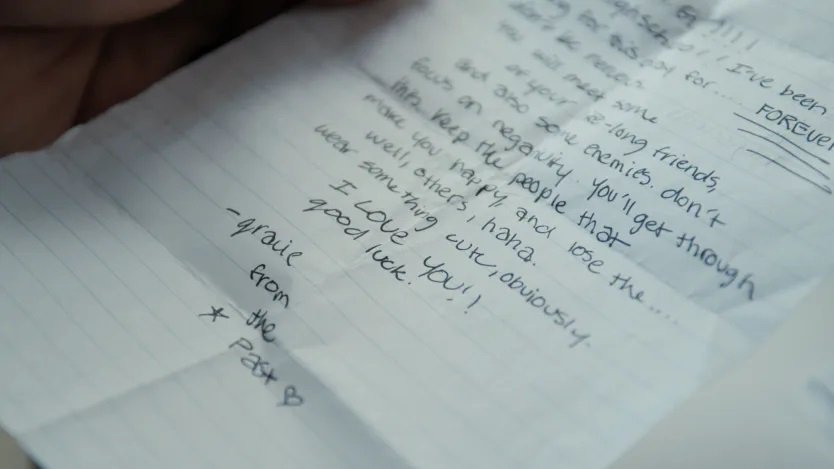 high school!! I've been
for this day for.... FOREVER
don't be
You will meet some
of your -long friends,
and also some enemies. don't
focus on negativity. You'll get through
this. Keep the people that
make you happy, and lose the....
well, others, haha.
wear something cute, obviously.
I LOVE YOU!!
good luck.
-gracie
from
the
* Past